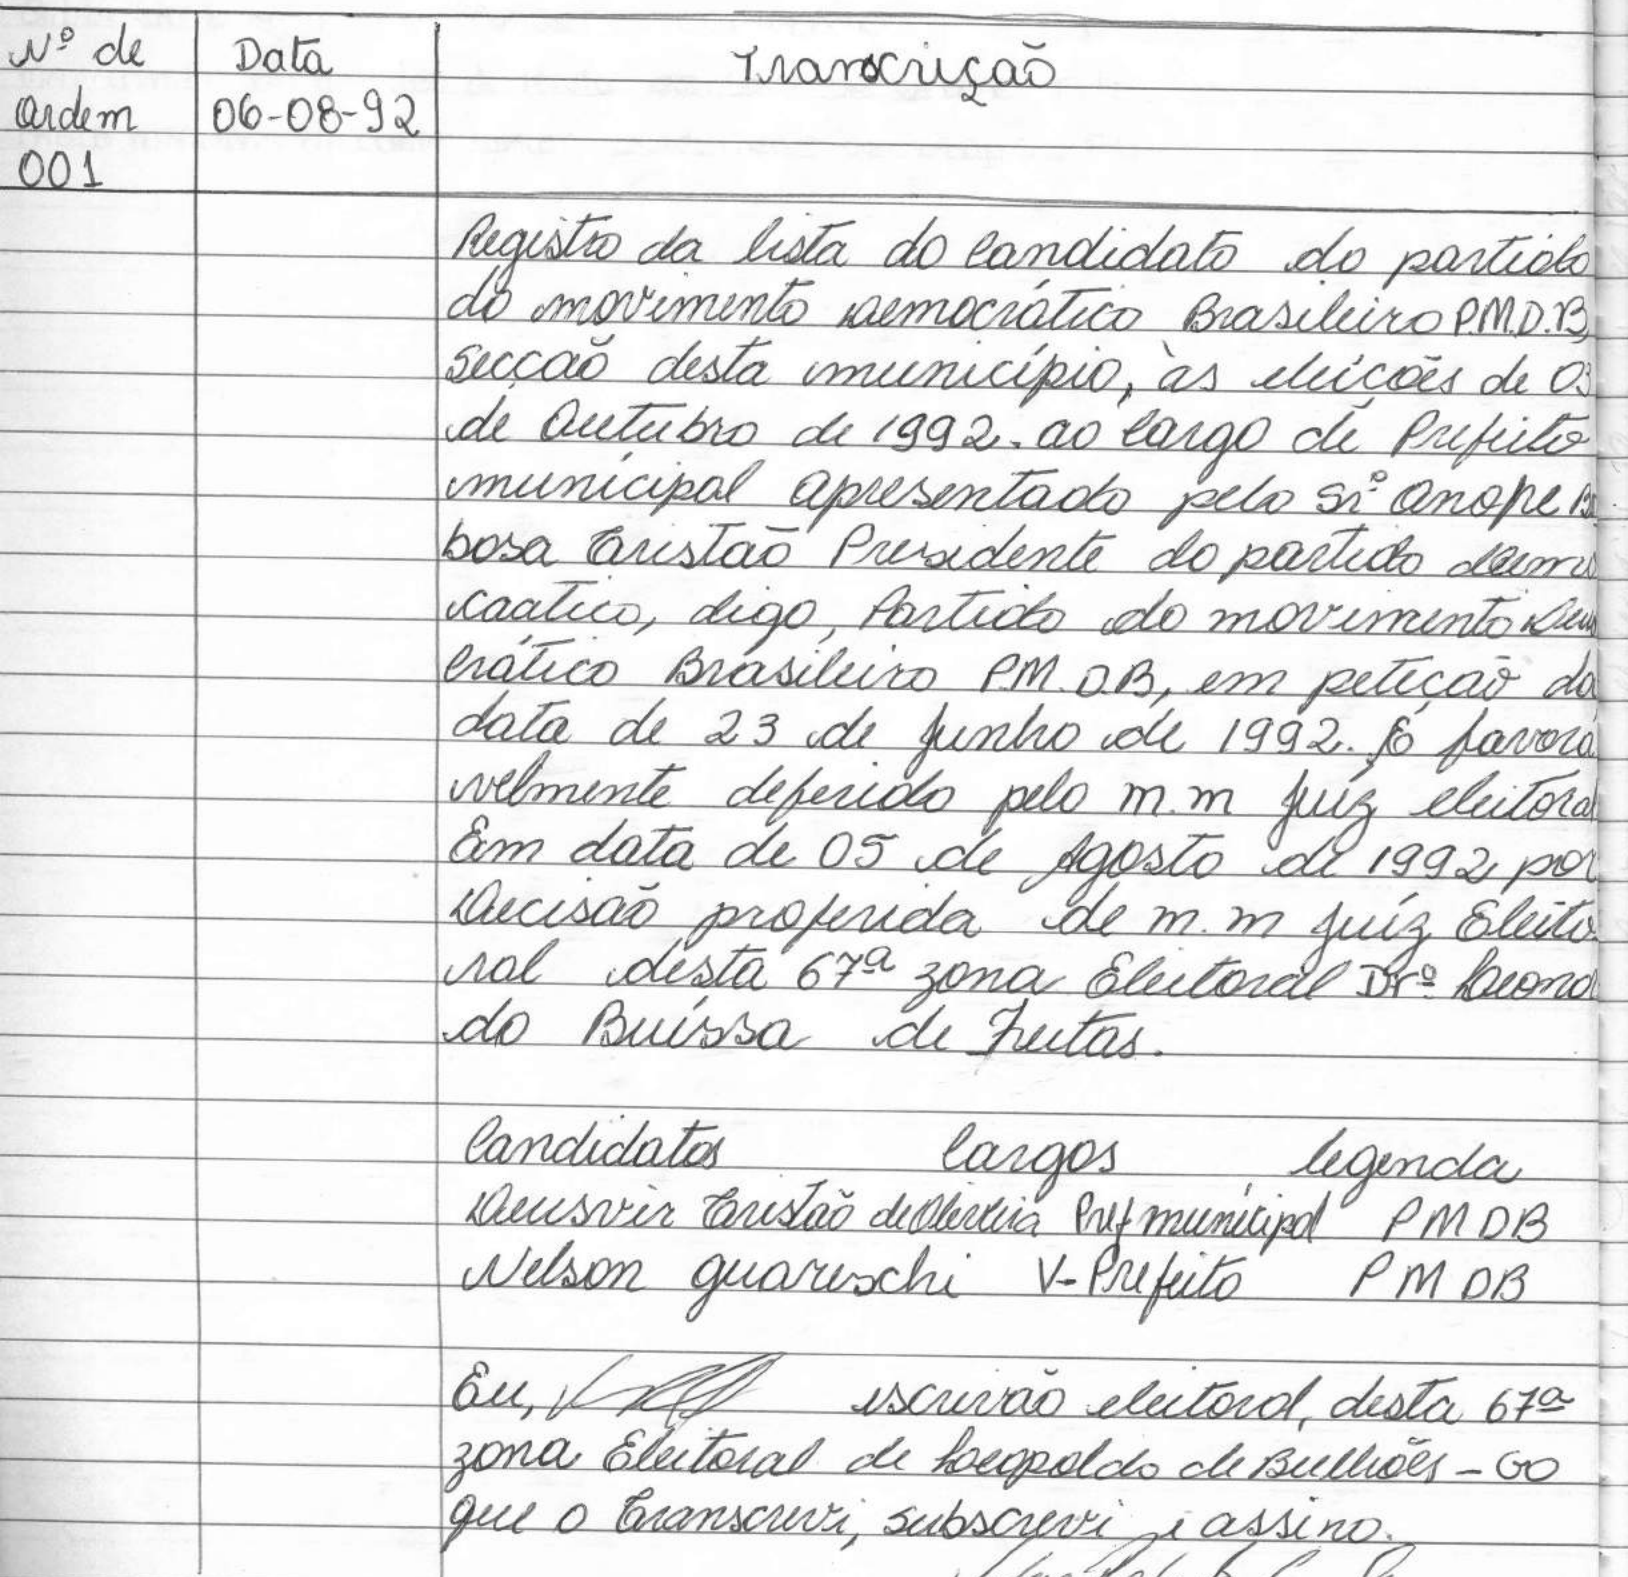 Nº de Data Transcrição
Ordem 06-08-92
001
Registro da lista do Candidato do partido
do movimento Democrático Brasileiro P.M.D.B,
Secção desta município, às eleições de 03
de Outubro de 1992. ao Cargo de Prefeito
municipal apresentado pelo Srº Anope
bosa Tristão Presidente do partido demo
caatico, digo, Partido do movimento Demo
crático Brasileiro P.M.D.B, em petição da
data de 23 de Junho de 1992. É favora
velmente deferido pelo m.m Juíz eleitoral
Em data de 05 de Agosto de 1992 por
Decisão proferida de m.m Juíz Eleito
ral desta 67ª zona Eleitoral Drº Leona
do Buissa de Freitas.
Candidatos Cargos legenda
Deusvir Tristão de Oliveira Pref municipal PMDB
Nelson guareschi V-Prefeito PMDB
Eu, escrivão eleitoral, desta 67ª
zona Eleitoral de Leopoldo de Bulhões - GO
que o Transcrevi, subscrevi e assino.